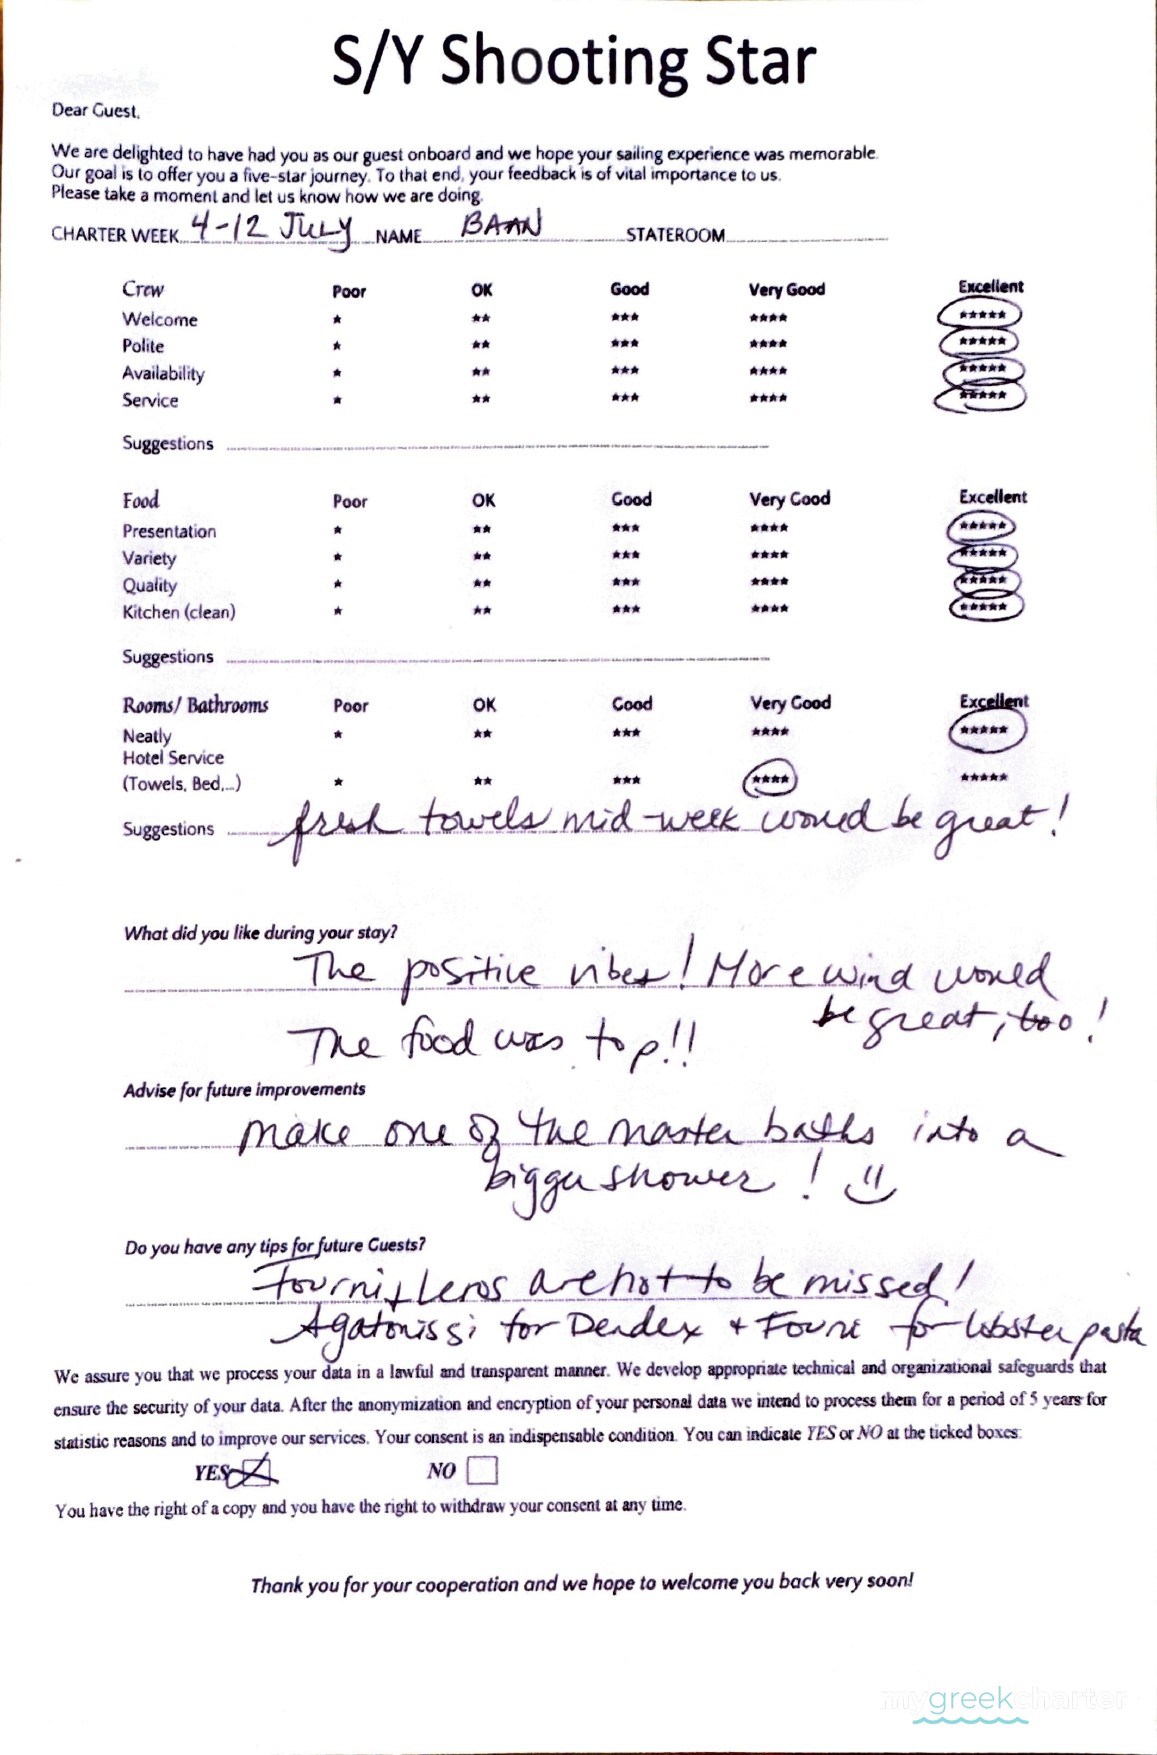 S/Y Shooting Star
Dear Guest,
We are delighted to have had you as our guest onboard and we hope your sailing experience was memorable.
Our goal is to offer you a five-star journey. To that end, your feedback is of vital importance to us.
Please take a moment and let us know how we are doing.
CHARTER WEEK 4-12 JULY NAME BAAN STATEROOM
Crew Poor OK Good Very Good Excellent
Welcome * ** *** **** *****
Polite * ** *** **** *****
Availability * ** *** **** *****
Service * ** *** **** *****
Suggestions
Food Poor OK Good Very Good Excellent
Presentation * ** *** **** *****
Variety * ** *** **** *****
Quality * ** *** **** *****
Kitchen (clean) * ** *** **** *****
Suggestions
Rooms/ Bathrooms Poor OK Good Very Good Excellent
Neatly * ** *** **** *****
Hotel Service
(Towels, Bed,...) * ** *** **** *****
Suggestions fresh towels mid-week would be great!
What did you like during your stay?
The positive vibes! More wind would
be great, too!
The food was top!!
Advise for future improvements
make one of the master baths into a
bigger shower!
Do you have any tips for future Guests?
Fourni + Leros are not to be missed!
Agatonissi for + Fourni for lobster pasta
We assure you that we process your data in a lawful and transparent manner. We develop appropriate technical and organizational safeguards that
ensure the security of your data. After the anonymization and encryption of your personal data we intend to process them for a period of 5 years for
statistic reasons and to improve our services. Your consent is an indispensable condition. You can indicate YES or NO at the ticked boxes:
YES NO
You have the right of a copy and you have the right to withdraw your consent at any time.
Thank you for your cooperation and we hope to welcome you back very soon!
mygreekcharter